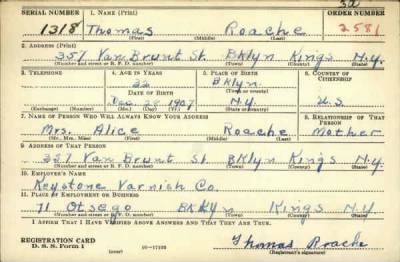 SERIAL NUMBER 1. NAME (Print) ORDER NUMBER
1318 Thomas Roache 2581
(First) (Middle) (Last)
2. ADDRESS (Print)
357 Van Brunt St. Bklyn Kings N.Y.
(Number and street or R. F. D. number) (Town) (County) (State)
3. TELEPHONE 4. AGE IN YEARS 5. PLACE OF BIRTH 6. COUNTRY OF CITIZENSHIP
32 Bklyn
DATE OF BIRTH (Town or county)
Dec 28 1907 N.Y. U.S.
(Exchange) (Number) (Mo.) (Day) (Yr.) (State or country)
7. NAME OF PERSON WHO WILL ALWAYS KNOW YOUR ADDRESS 8. RELATIONSHIP OF THAT PERSON
Mrs. Alice Roache Mother
(Mr., Mrs., Miss) (First) (Middle) (Last)
9. ADDRESS OF THAT PERSON
357 Van Brunt St. Bklyn Kings N.Y.
(Number and street or R. F. D. number) (Town) (County) (State)
10. EMPLOYER'S NAME
Keystone Varnish Co.
11. PLACE OF EMPLOYMENT OR BUSINESS
71 Otsego BKLyn Kings N.Y.
(Number and street or R. F. D. number) (Town) (County) (State)
I AFFIRM THAT I HAVE VERIFIED ABOVE ANSWERS AND THAT THEY ARE TRUE.
REGISTRATION CARD
D. S. S. Form 1 (over) Thomas Roache
(Registrant's signature)